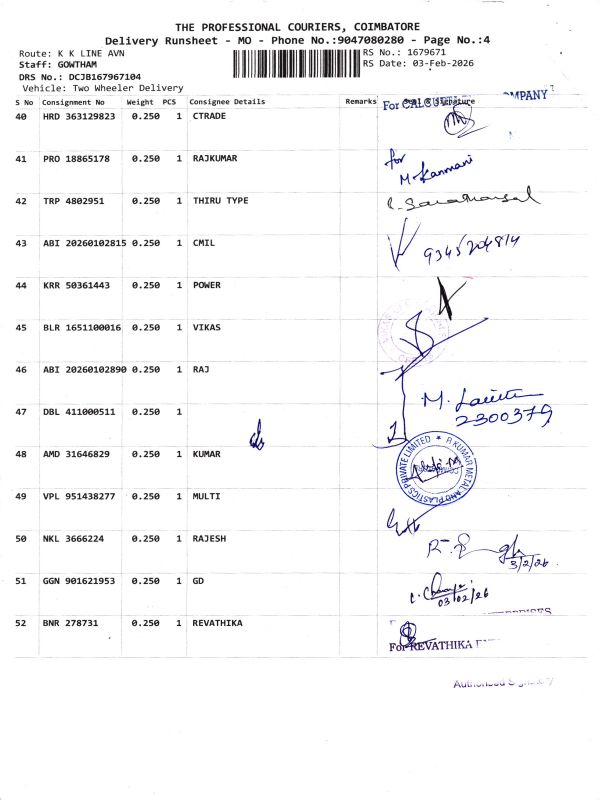 THE PROFESSIONAL COURIERS, COIMBATORE
Delivery Runsheet - MO - Phone No.:9047080280 - Page No.:4
Route: K K LINE AVN
RS No.: 1679671
Staff: GOWTHAM
RS Date: 03-Feb-2026
DRS No.: DCJB167967104
Vehicle: Two Wheeler Delivery
S No Consignment No Weight PCS Consignee Details Remarks Seal & Signature
For COMPANY
40 HRD 363129823 0.250 1 CTRADE
41 PRO 18865178 0.250 1 RAJKUMAR for
M. Kanmani
42 TRP 4802951 0.250 1 THIRU TYPE
43 ABI 20260102815 0.250 1 CMIL 9345204814
44 KRR 50361443 0.250 1 POWER
45 BLR 1651100016 0.250 1 VIKAS
46 ABI 20260102890 0.250 1 RAJ
M.
47 DBL 411000511 0.250 1 2300379
48 AMD 31646829 0.250 1 KUMAR R KUMAR METAL AND PLASTICS PRIVATE LIMITED
49 VPL 951438277 0.250 1 MULTI
50 NKL 3666224 0.250 1 RAJESH
3/2/26
51 GGN 901621953 0.250 1 GD
03/02/26
52 BNR 278731 0.250 1 REVATHIKA
For REVATHIKA
Authorised Signatory